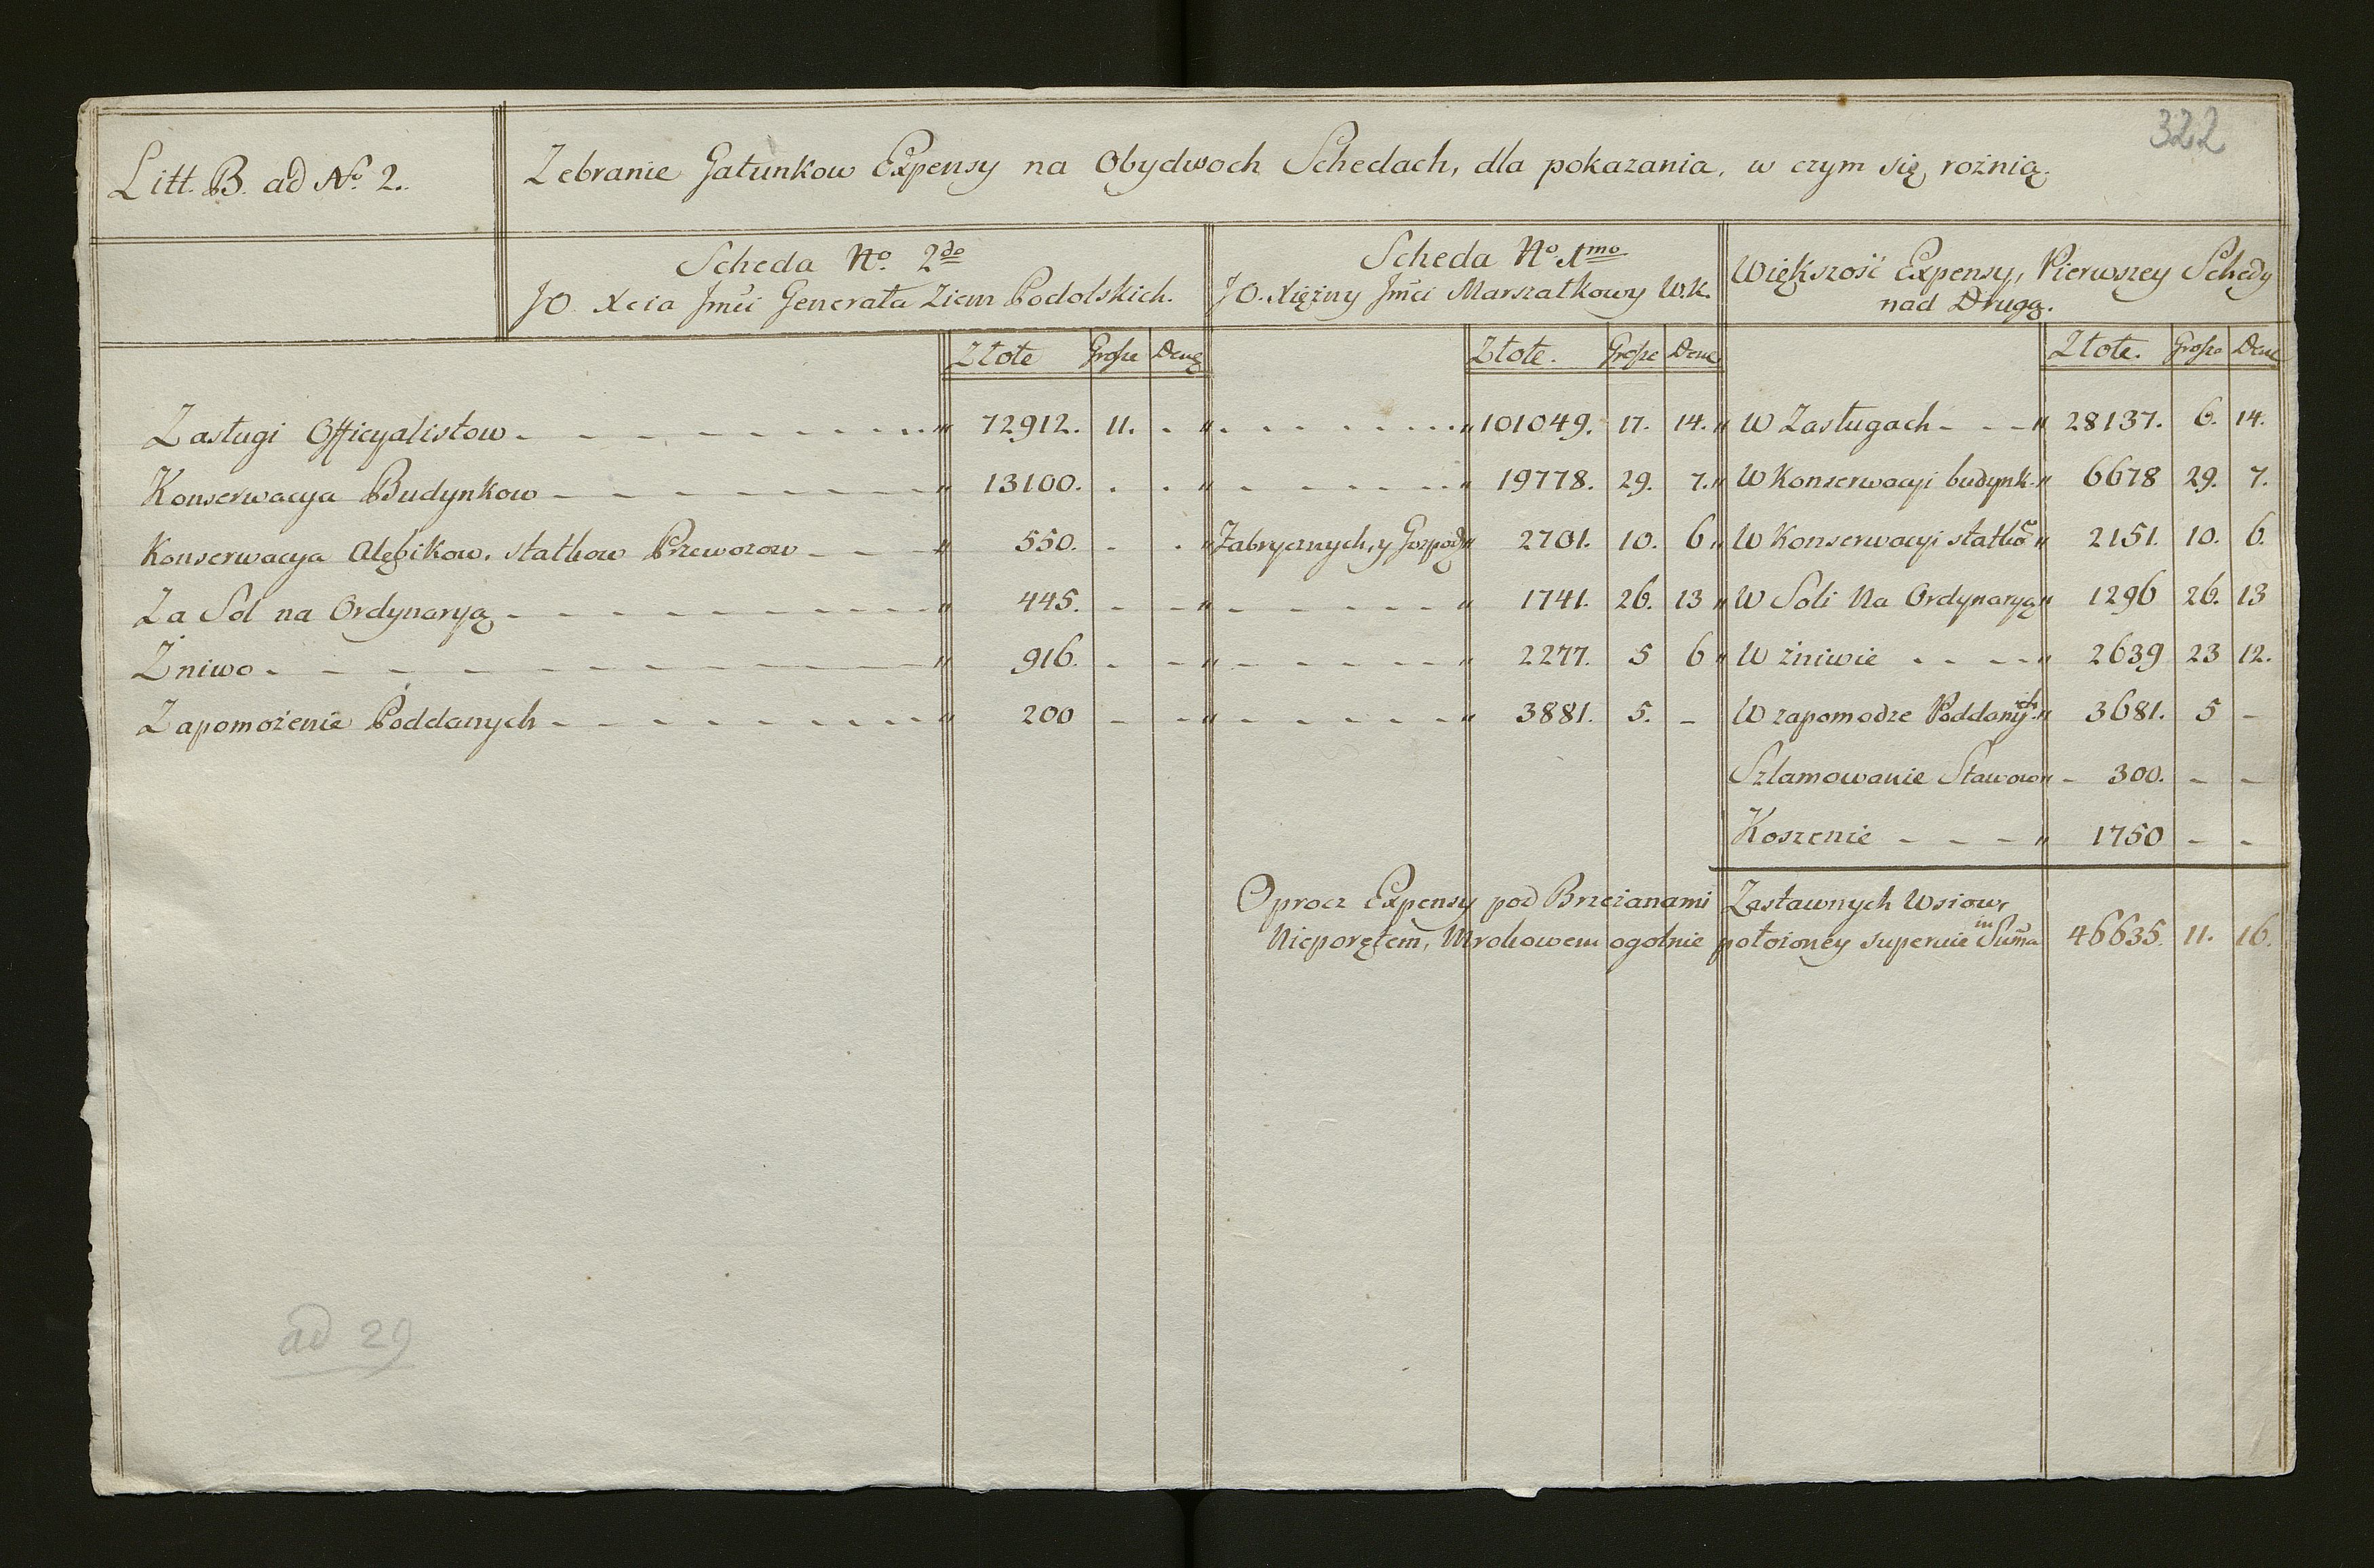 322
Litt. B. ad No. 2.
Zebranie Gatunkow Expensy na Obydwoch Schedach, dla pokazania, w czym się rożnią.
Scheda No. 2do
JO. Xcia Jmći Generała Ziem Podolskich.
Scheda No. 1mo
JO. Xiężny Jmći Marszałkowy W.K.
Większość Expensy, Pierwszey Schedy
nad Drugą.
Złote Grosze Deną Złote. Grosze Dena Złote. Grosze Dena
Zasługi Officyalistow. 72912. 11. . 101049. 17. 14. W Zasługach 28137. 6. 14.
Konserwacya Budynkow 13100. . . 19778. 29. 7. W Konserwacyi budynk. 6678 29. 7.
Konserwacya Alębikow, statkow Przewozow 550. . . Fabrycznych, y Gospod 2701. 10. 6. W Konserwacyi statkō 2151. 10. 6.
Za Sol na Ordynaryą 445. - - 1741. 26. 13 W Soli Na Ordynaryą 1296 26. 13
Żniwo 916. . - 2277. 5 6 W żniwie 2639 23 12.
Zapomożenie Poddanych 200 - - 3881. 5. - W zapomodze Poddanych 3681. 5 -
Szlamowanie Stawow - 300. - -
Koszenie 1750 - -
Oprocz Expensy pod Brzeżanami Zastawnych Wsiow,
Nieporętem, Mrokowem ogolnie położoney superuie in Sum̄a 46635. 11. 16.
ad 29